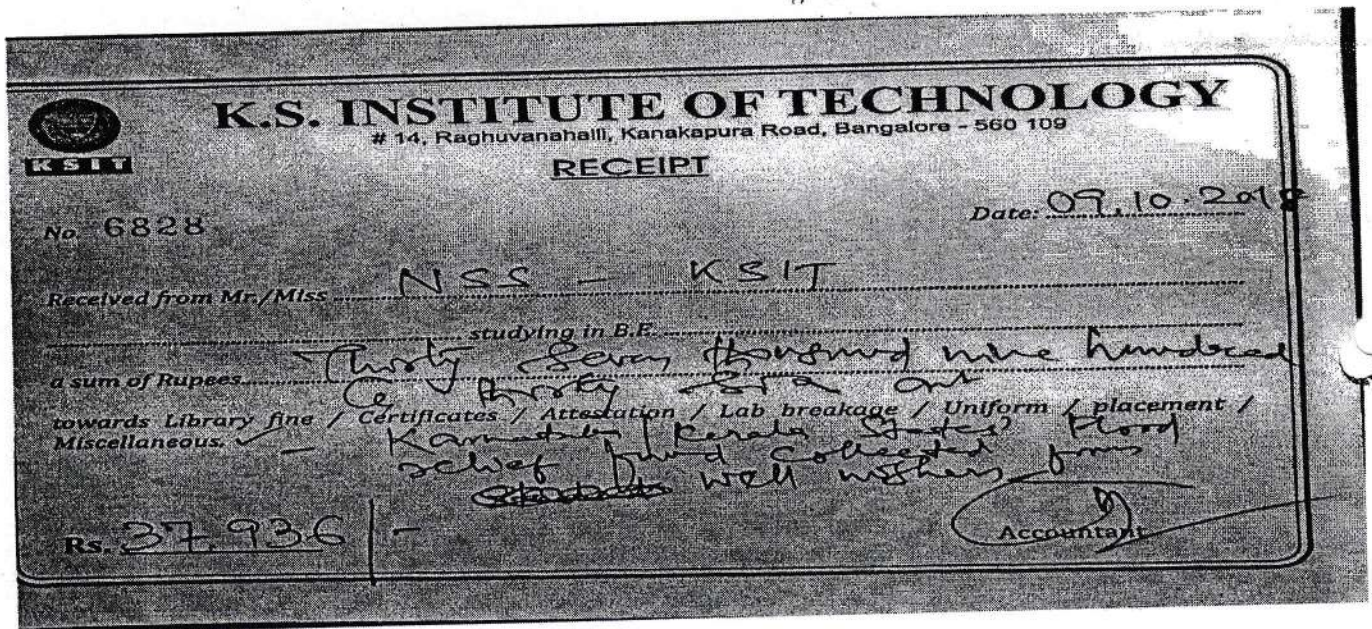 K.S. INSTITUTE OF TECHNOLOGY
# 14, Raghuvanahalli, Kanakapura Road, Bangalore - 560 109
KSIT
RECEIPT
No. 6828
Date: 09.10.2018
Received from Mr./Miss NSS - KSIT
studying in B.E.
a sum of Rupees Thirty Seven thousand nine hundred
thirty
towards Library fine / Certificates / Attestation / Lab breakage / Uniform / placement /
Miscellaneous. ✓ - Karnataka / Kerala States' Flood
relief fund collected from
well wishers
Rs. 37,936/-
Accountant